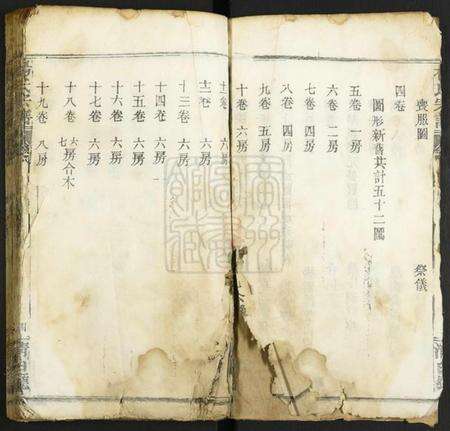 喪服圖 祭儀
四卷
圖形新舊共計五十二圖
五卷 一房
六卷 二房
七卷 四房
八卷 四房
九卷 五房
十卷 六房
十一卷 六房
十二卷 六房
十三卷 六房
十四卷 六房
十五卷 六房
十六卷 六房
十七卷 六房
十八卷 六七房合木
十九卷 八房